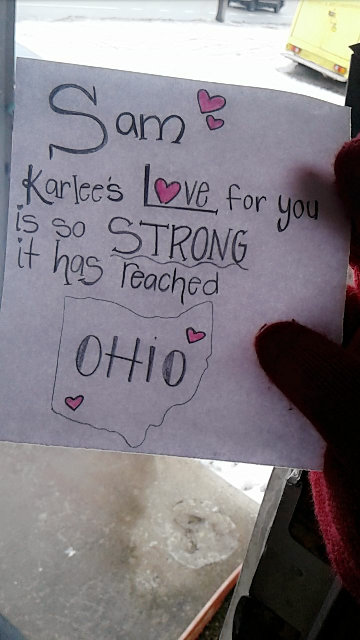 Sam
Karlee's Love for you
is so STRONG
it has reached
OHiO